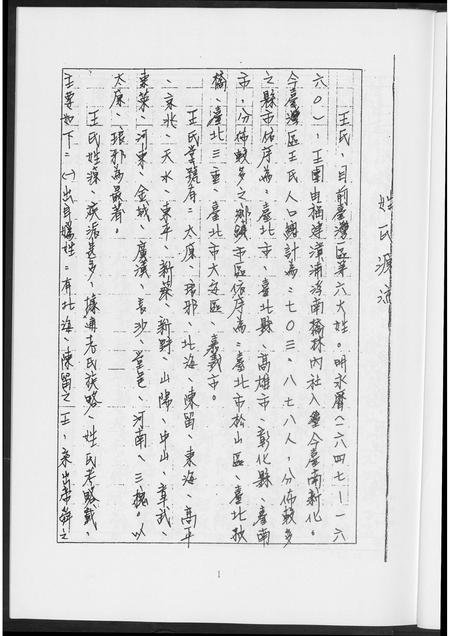 姓氏源流
王氏、目前臺灣區第六大姓。明永曆(一六四七—一六
六〇)，王團由福建漳浦海南橋林內社入墾今臺南新化。
今臺灣區王氏人口總計為：七〇三、八七八人，分佈較多
之縣市依序為：臺北市、臺北縣、高雄市、彰化縣、臺南
市，分佈較多之鄉鎮市區依序為：臺北市松山區、臺北板
橋、臺北三重、臺北市大安區、嘉義市。
王氏堂號有：太原、琅邪、北海、陳留、東海、高平
、京兆、天水、東平、新蔡、新野、山陽、中山、章武、
東萊、河東、金城、廣漢、長沙、堂邑、河南、三槐。以
太原、琅邪為最著。
王氏姓源、流派甚多，據通志氏族略、姓氏考略載，
主要如下：㈠出自媯姓：有北海、陳留之王，系出帝舜之
1